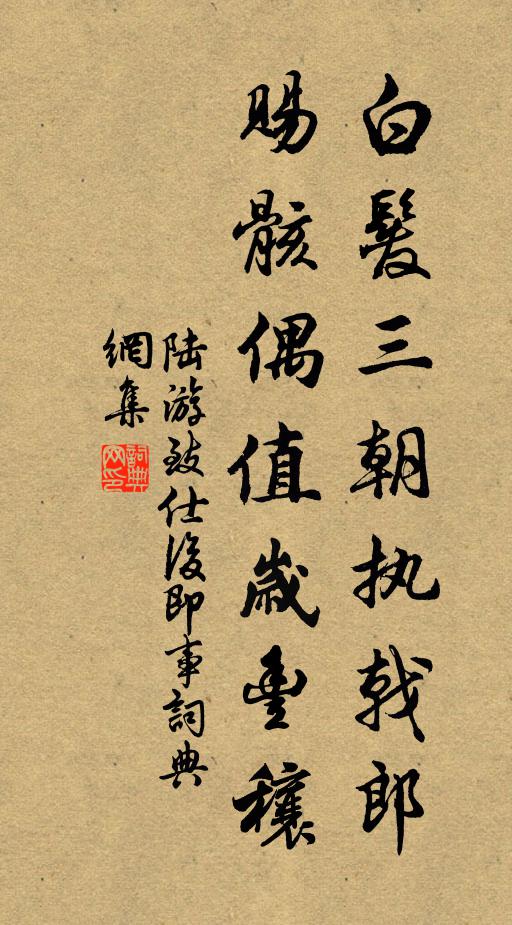 白髮三朝执戟郎
賜骸偶值歲豊穰
陆游致仕後即事詞典
網集
詞典
网印